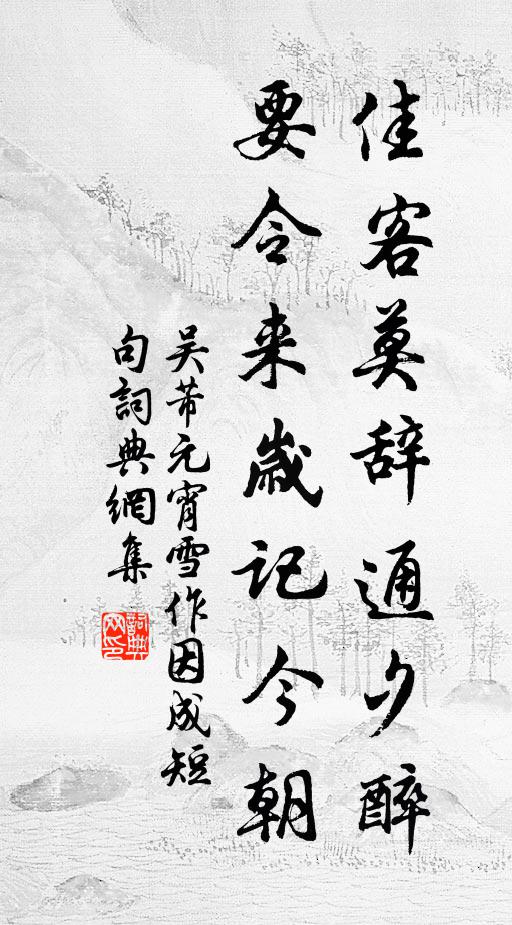 佳客莫辞通夕醉
要令来歲记今朝
吴芾元宵雪作因成短
句詞典網集
詞典网印